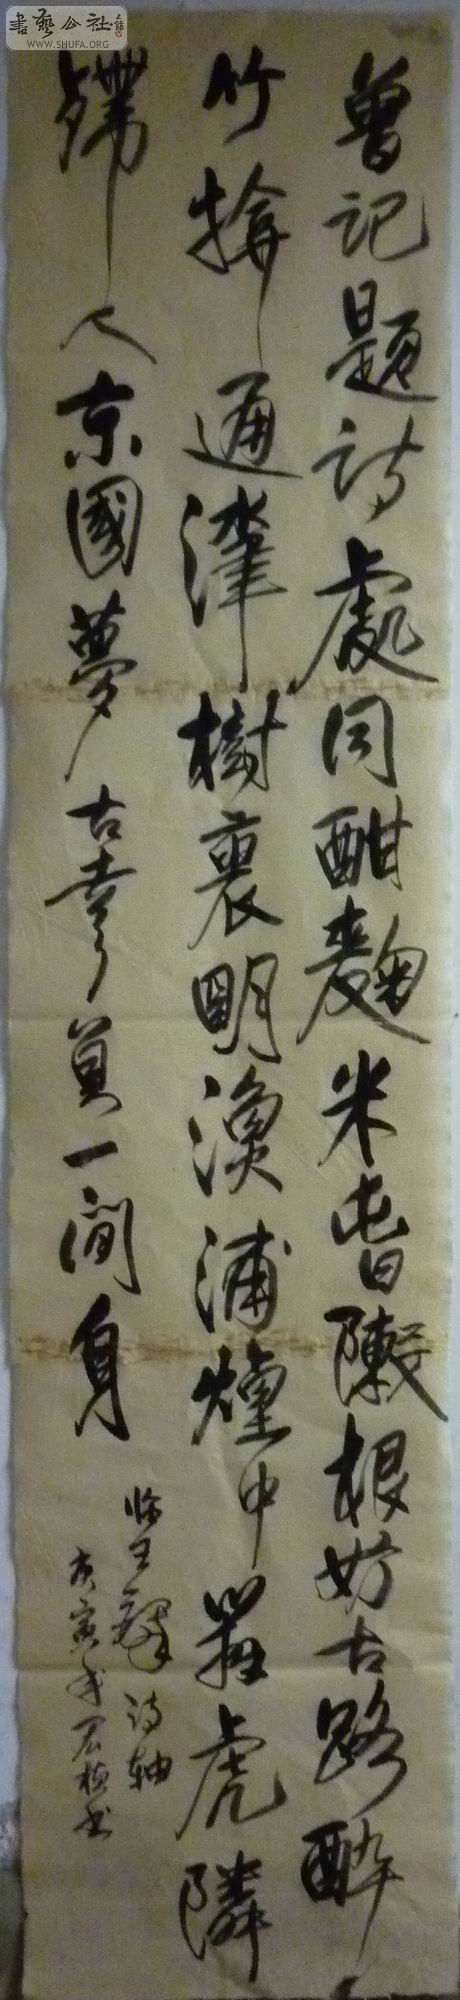 書藝公社
WWW.SHUFA.ORG
曾記題詩處同酣麴米旾根妨古路醉
竹通津樹裏明漁浦煙中虎隣
歸人京國夢辜負一間身
临王鐸诗轴
庚寅年书